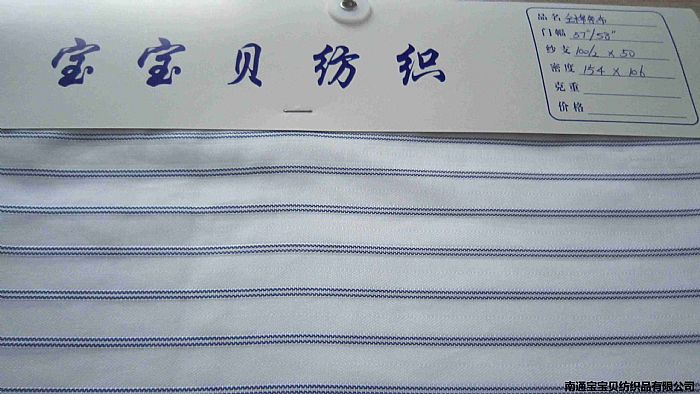 宝宝贝纺织
品名 全棉色布
门幅 57"/58"
纱支 100/2 x 50
密度 154 x 106
克重
价格
南通宝宝贝纺织品有限公司